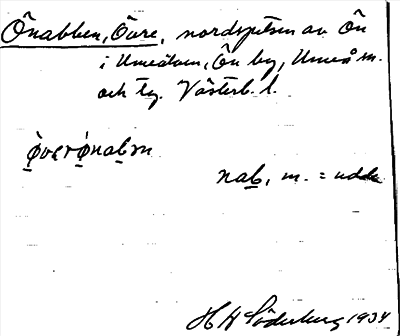 Önabben, Övre, nordspetsen av Ön
i Umeälven, Ön by, Umeå sn.
och tg. Västerb. l.
ø̀vərø̀nab̲m
nab̲, m. = udde
H H Söderberg 1934